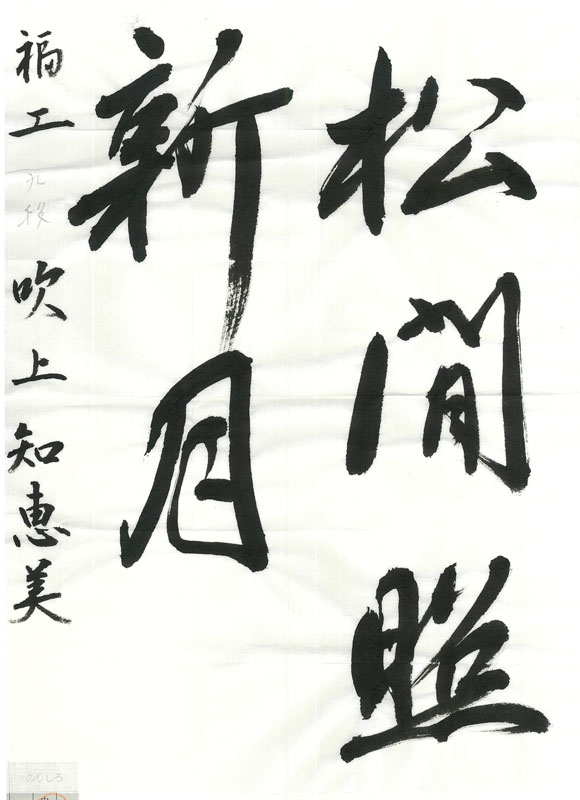 松間照
新月
福工 九段 吹上 知恵美
のりしろ